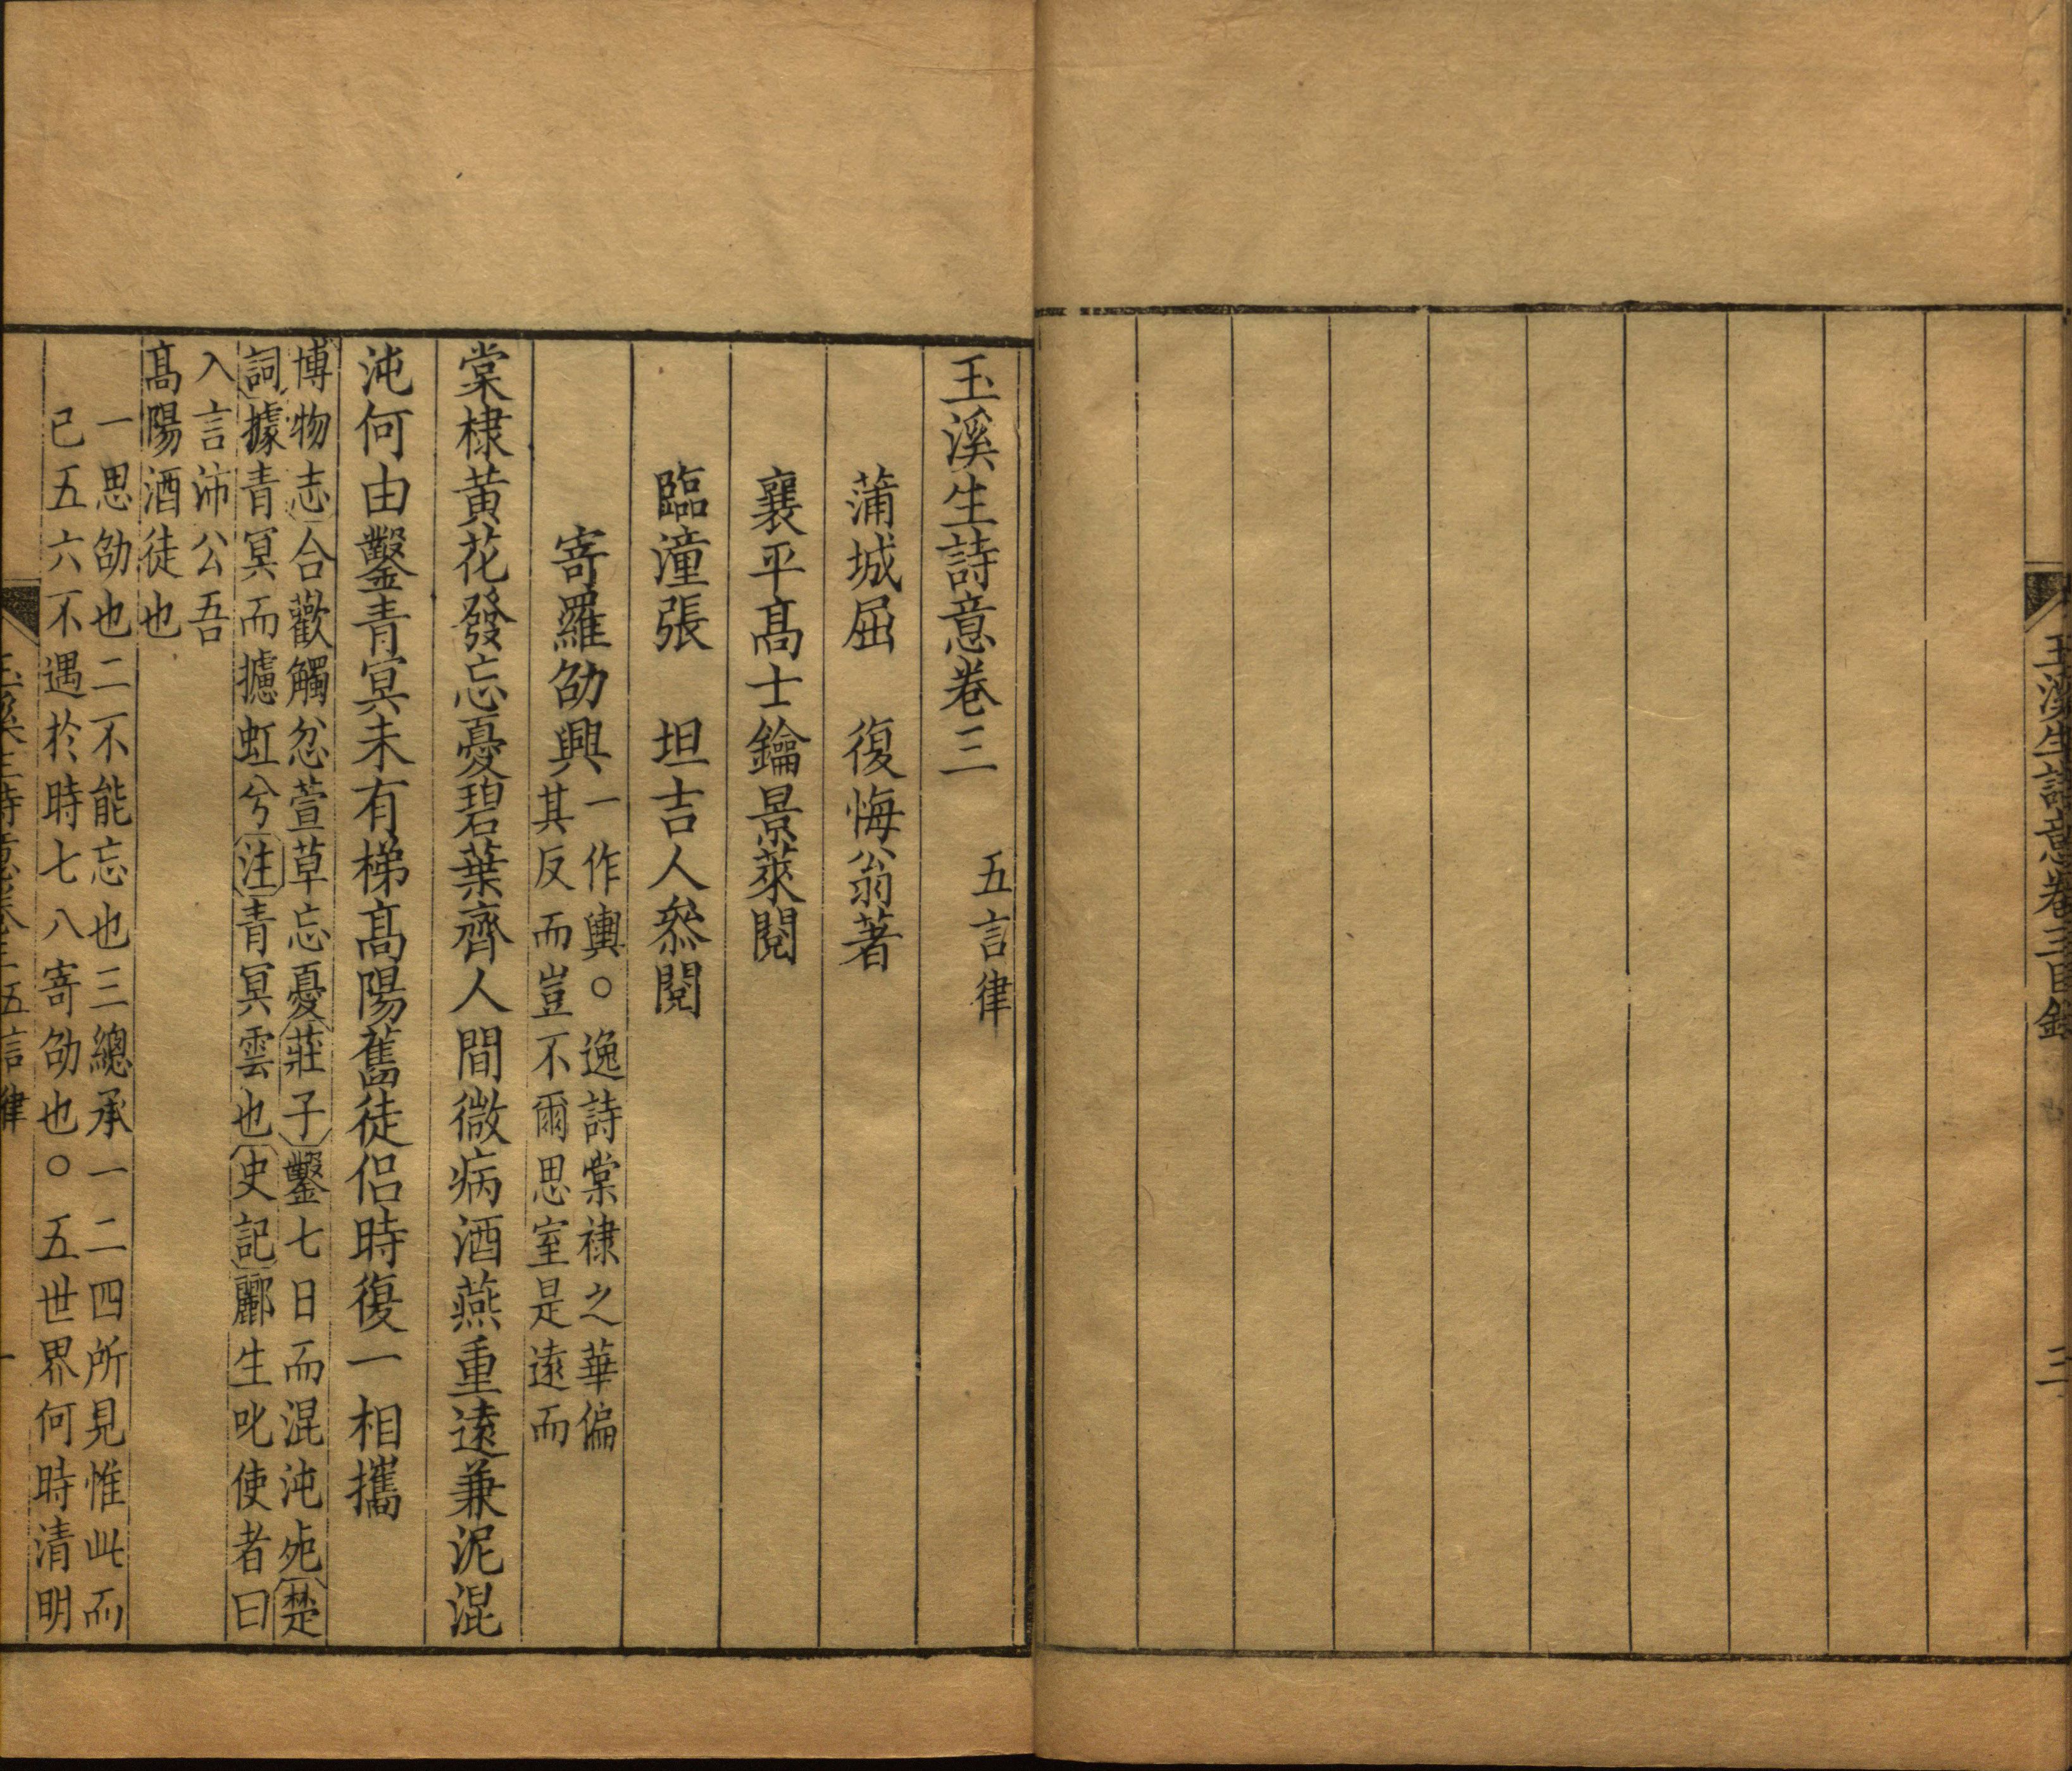 玉溪生詩意卷三目錄
三
玉溪生詩意卷三　五言律
蒲城屈　復悔翁著
襄平高士鑰景萊閱
臨潼張　坦吉人叅閱
寄羅劭興
一作輿。逸詩棠棣之華偏
其反而豈不爾思室是遠而
棠棣黄花發忘憂碧葉齊人間微病酒燕重遠兼泥混
沌何由鑿青冥未有梯髙陽舊徒侣時復一相攜
博物志合歡觸忿萱草忘憂莊子鑿七日而混沌死楚
詞據青冥而攄虹兮注青冥雲也史記酈生叱使者曰
入言沛公吾
髙陽酒徒也
一思劭也二不能忘也三總承一二四所見惟此而
已五六不遇於時七八寄劭也。五世界何時清明
玉溪生詩意卷三五言律
一